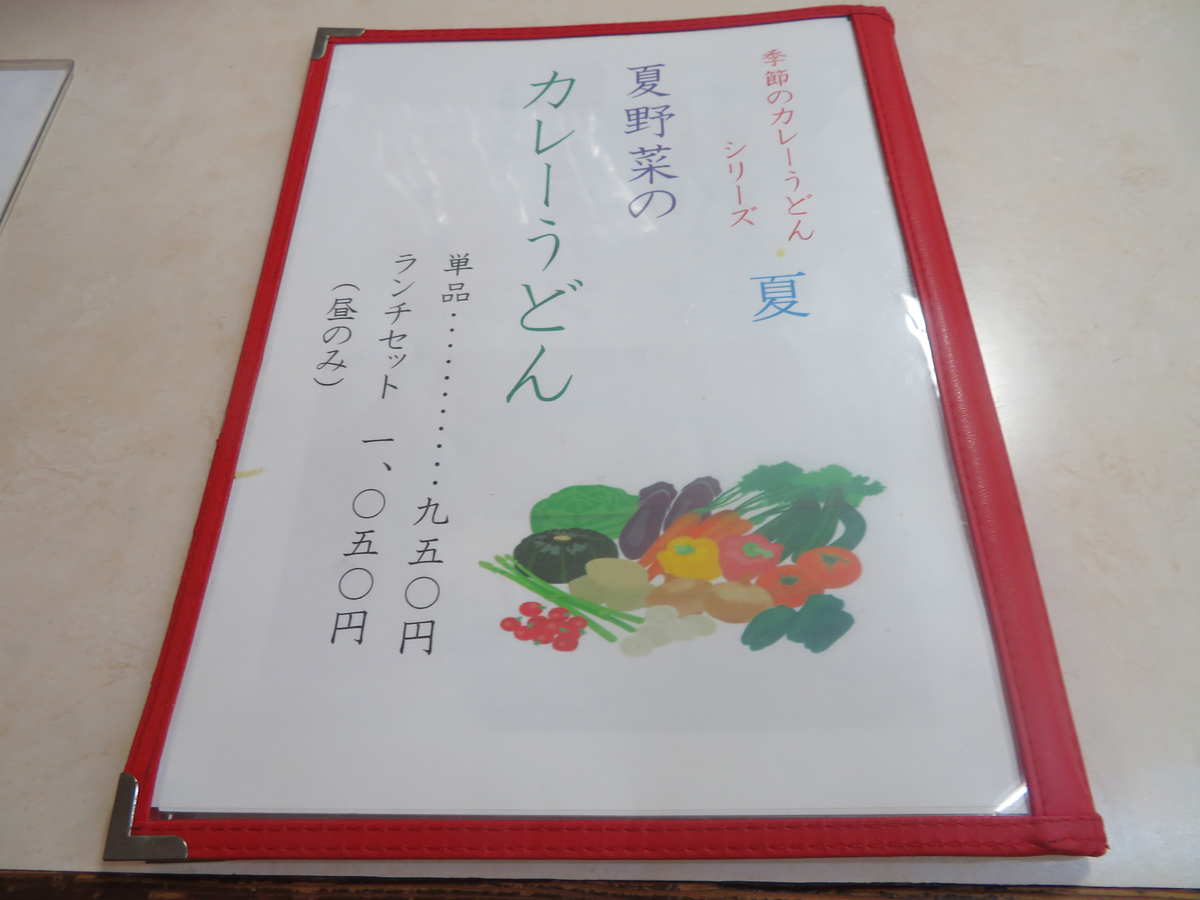 季節のカレーうどん
シリーズ
夏
夏野菜の
カレーうどん
単品・・・・・・・・・・九五〇円
ランチセット 一、〇五〇円
(昼のみ)